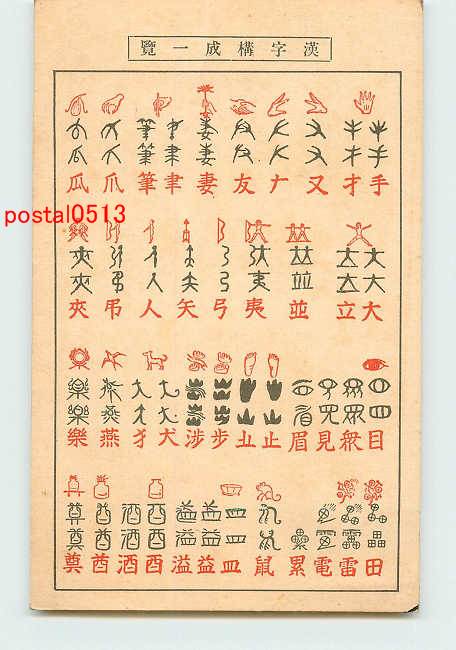 漢字構成一覽
手才又ナ友妻聿筆爪瓜
postal0513
大立並夷弓矢人吊夾
目眾見眉止步涉犬犭燕樂
田雷電累鼠皿益溢酉酒酋尊奠